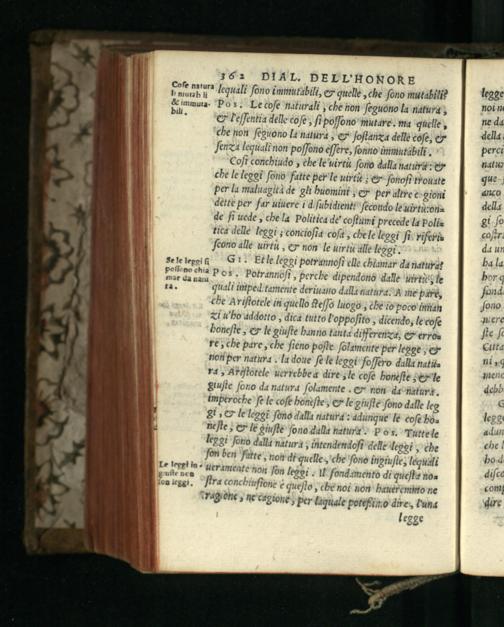 362 DIAL. DELL'HONORE
Cose natura
li mutabili
& immuta-
bili.
lequali sono immutabili, & quelle, che sono mutabili?
Pos. Le cose naturali, che non seguono la natura,
& l'essentia delle cose, si possono mutare. ma quelle,
che non seguono la natura, & sostanza delle cose, &
senza lequali non possono essere, sonno immutabili.
Così conchiudo, che le virtù sono dalla natura: &
che le leggi sono fatte per le virtù; & sonosi trouate
per la maluagità de gli huomini, & per altre cagioni
dette per far viuere i disubidienti secondo le virtù: on-
de si vede, che la Politica de' costumi precede la Poli-
tica delle leggi; conciosia cosa, che le leggi si riferi-
scono alle virtù, & non le virtù alle leggi.
Se le leggi si
possono chia
mar da natu
ra.
GI. Et le leggi potrannosi elle chiamar da natura?
Pos. Potrannosi, perche dipendono dalle virtù, le
quali impeditamente deriuano dalla natura. A me pare,
che Aristotele in quello stesso luogo, che io poco innan
zi v'ho addotto, dica tutto l'opposito, dicendo, le cose
honeste, & le giuste hanno tanta differenza, & erro-
re, che pare, che sieno poste solamente per legge, &
non per natura. la doue se le leggi fossero dalla natu-
ra, Aristotele verrebbe a dire, le cose honeste, & le
giuste sono da natura solamente. & non da natura.
imperoche se le cose honeste, & le giuste sono dalle leg
gi, & le leggi sono dalla natura: adunque le cose ho-
neste, & le giuste sono dalla natura. Pos. Tutte le
leggi sono dalla natura, intendendosi delle leggi, che
son ben fatte, non di quelle, che sono ingiuste, lequali
Le leggi in-
giuste non
son leggi.
veramente non son leggi. Il fondamento di questa no-
stra conchiusione è questo, che noi non haueremmo ne
ragione, ne cagione, per laquale potessimo dire, l'una
legge